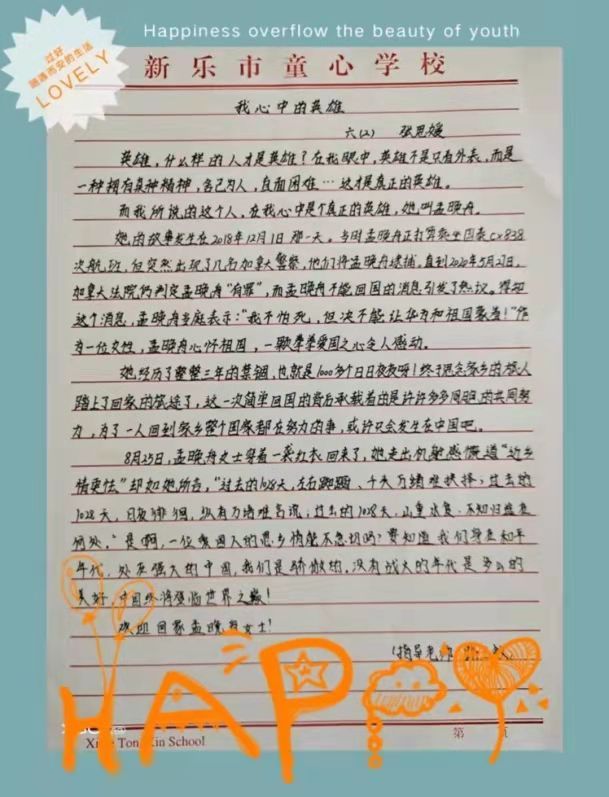 Happiness overflow the beauty of youth
过好
随遇而安的生活
LOVELY
新乐市童心学校
我心中的英雄
六(2) 张思媛
英雄,什么样的人才是英雄?在我眼中,英雄不是只有外表,而是
一种拥有某种精神,舍己为人,直面困难…这才是真正的英雄。
而我所说的这个人,在我心中是个真正的英雄,她叫孟晚舟。
她的故事发生在2018年12月1日那一天。当时孟晚舟正打算乘坐国泰cx838
次航班,但突然出现了几名加拿大警察,他们将孟晚舟逮捕,直到2020年5月27日,
加拿大法院仍判定孟晚舟“有罪”,而孟晚舟不能回国的消息引发了热议。得知
这个消息,孟晚舟当庭表示:“我不怕死,但决不能让华为和祖国蒙羞!”作
为一位女性,孟晚舟心怀祖国,一颗拳拳爱国之心令人感动。
她经历了整整三年的禁锢,也就是1000多个日日夜夜呀!终于思念家乡的旅人
踏上了回家的旅途了,这一次简单回国的背后承载着的是许许多多 的共同努
力,为了一人回到家乡整个国家都在努力的事,或许只会发生在中国吧。
8月25日,孟晚舟女士穿着一袭红衣回来了,她走出机舱感慨道“近乡
情更怯”却如她所言,“过去的1028天,左右踟蹰、千头万绪难抉择;过去的
1028天,日夜徘徊,纵有万语难言说;过去的1028天,山重水复、不知归途在
何处。”是啊,一位爱国人的思乡情能不急切吗?要知道我们身在和平
年代,处在强大的中国,我们是骄傲的,没有战火的年代是多么的
美好,中国终将强临世界之巅!
欢迎回家孟晚舟女士!
(指导老师
HAP
Xinle Tong Xin School
第 页